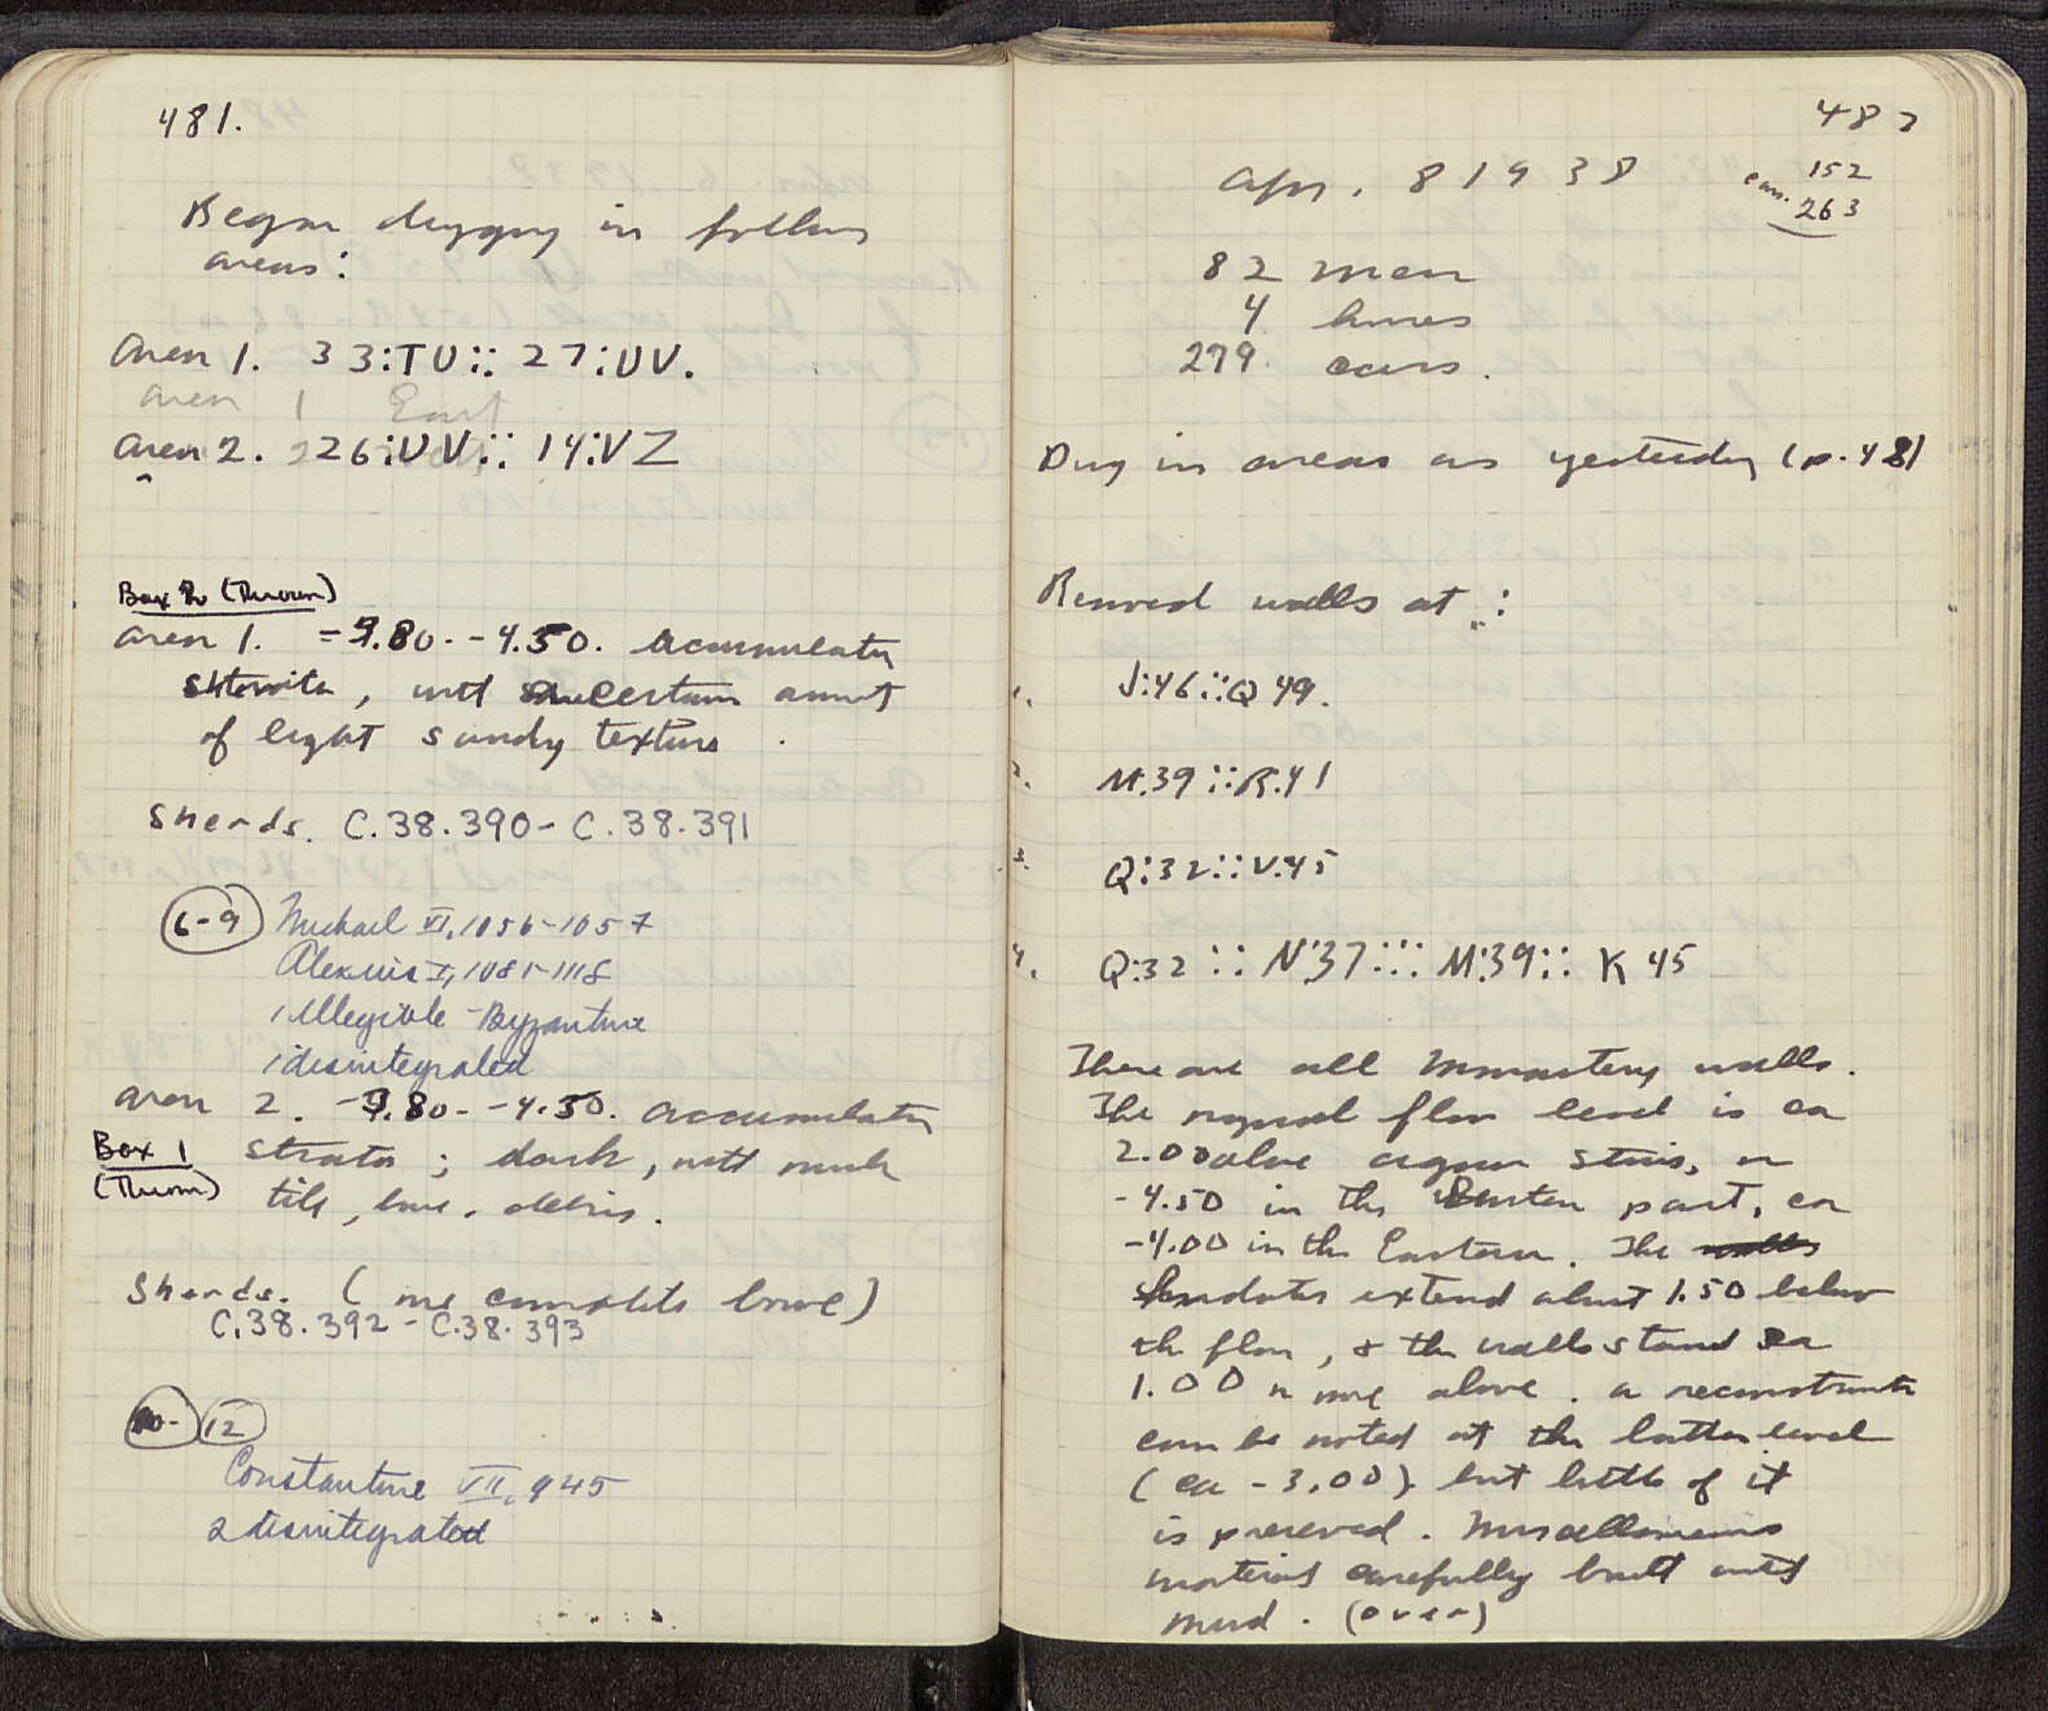 481.
Began digging in following
areas:
Area 1. 33:TU::27:UV.
Area 1 East
Area 2. 26:UV::14:VZ
Box 2 (Thrown)
Area 1. -3.80--4.50. Accumulation
, with certain amount
of light sandy texture.
Sherds. C.38.390-C.38.391
6-9 Michael VI, 1056-1057
Alexius I, 1081-1118
1 illegible-Byzantine
1 disintegrated
Area 2. -3.80--4.50. accumulation
Box 1 strata; dark, with much
(Thrown) tile, bone, debris.
Sherds. (one complete bowl)
C.38.392-C.38.393
10-12
Constantine VII, 945
2 disintegrated
482
Apr. 8 1938 152
263
82 men
4 horses
279 cars.
Dug in areas as yesterday (p. 481
Removed walls at:
1. J:46::Q 49.
2. M:39::R:41
3. Q:32::V:45
4. Q:32::N:37:::M:39::K 45
These are all Monastery walls.
The original floor level is ca
2.00 above agora stereo, or
-4.50 in the Western part, ca
-4.00 in the Eastern. The walls
foundations extend about 1.50 below
the floor, & the walls stand ca
1.00 or more above. A reconstruction
can be noted at the latter level
(ca -3.00) but little of it
is preserved. Miscellaneous
material carefully built with
mud. (over)